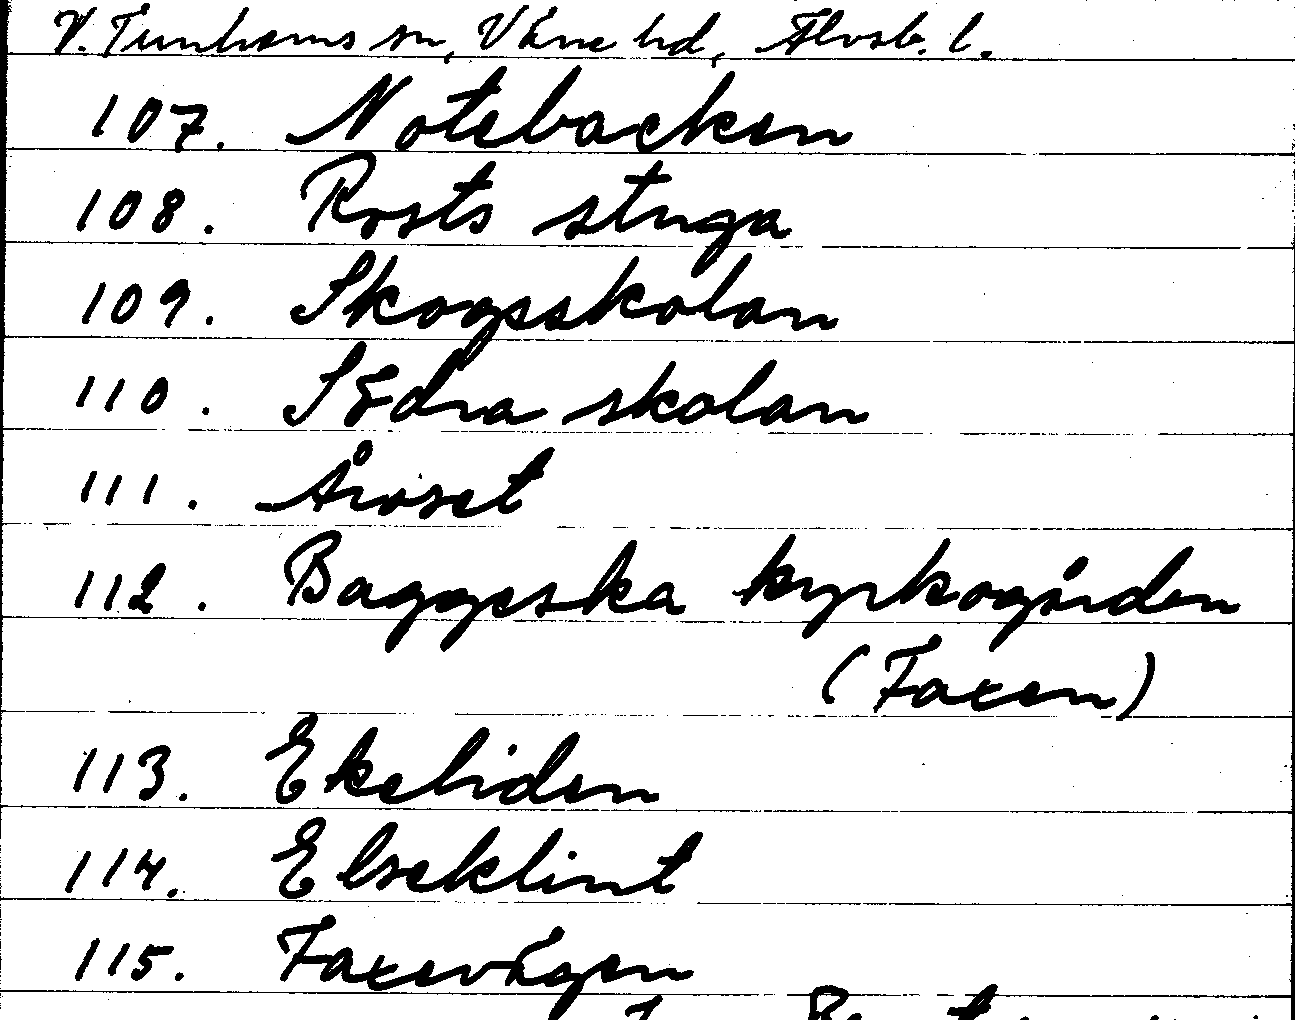 V. Tunhems sn, Väne hd, Älvsb. l.
107. Notebacken
108. Rosts stuga
109. Skogsskolan
110. Södra skolan
111. Åroset
112. Baggeska kyrkogården
(Faxen)
113. Ekeliden
114. Elseklint
115. Faxevägen